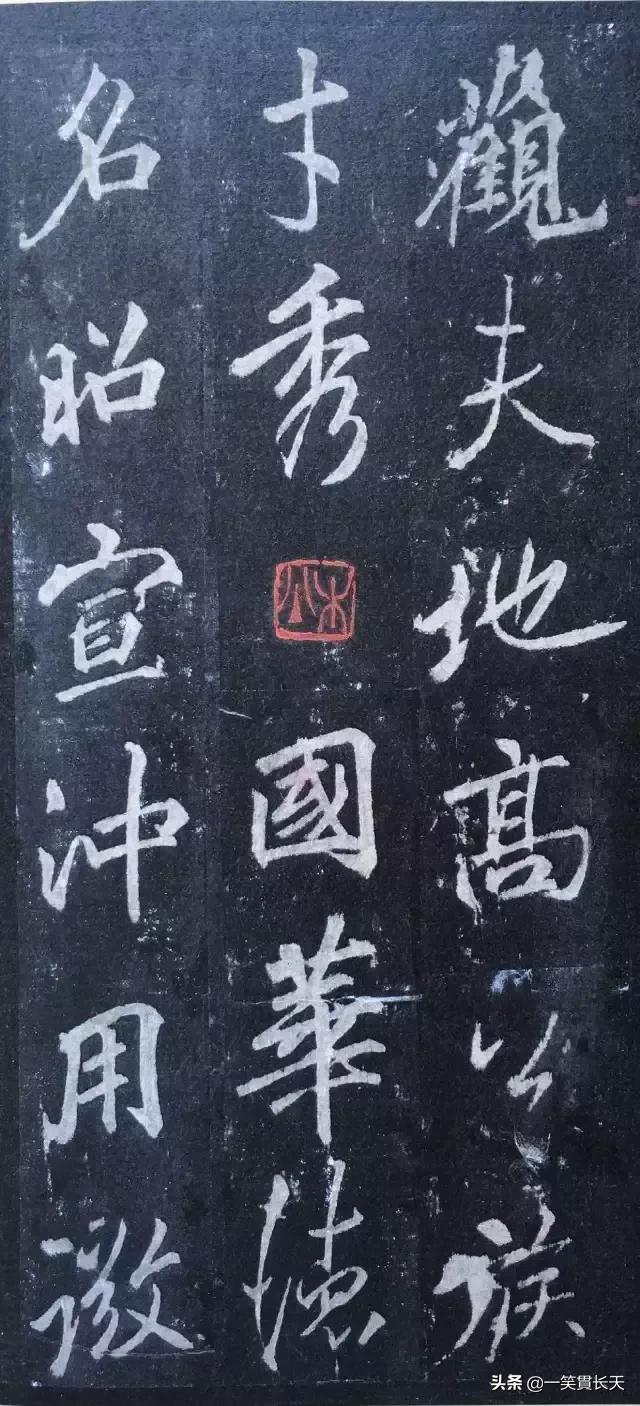 觀夫地高公族
才秀國華德
名昭宣沖用微
头条 @一笑貫长天